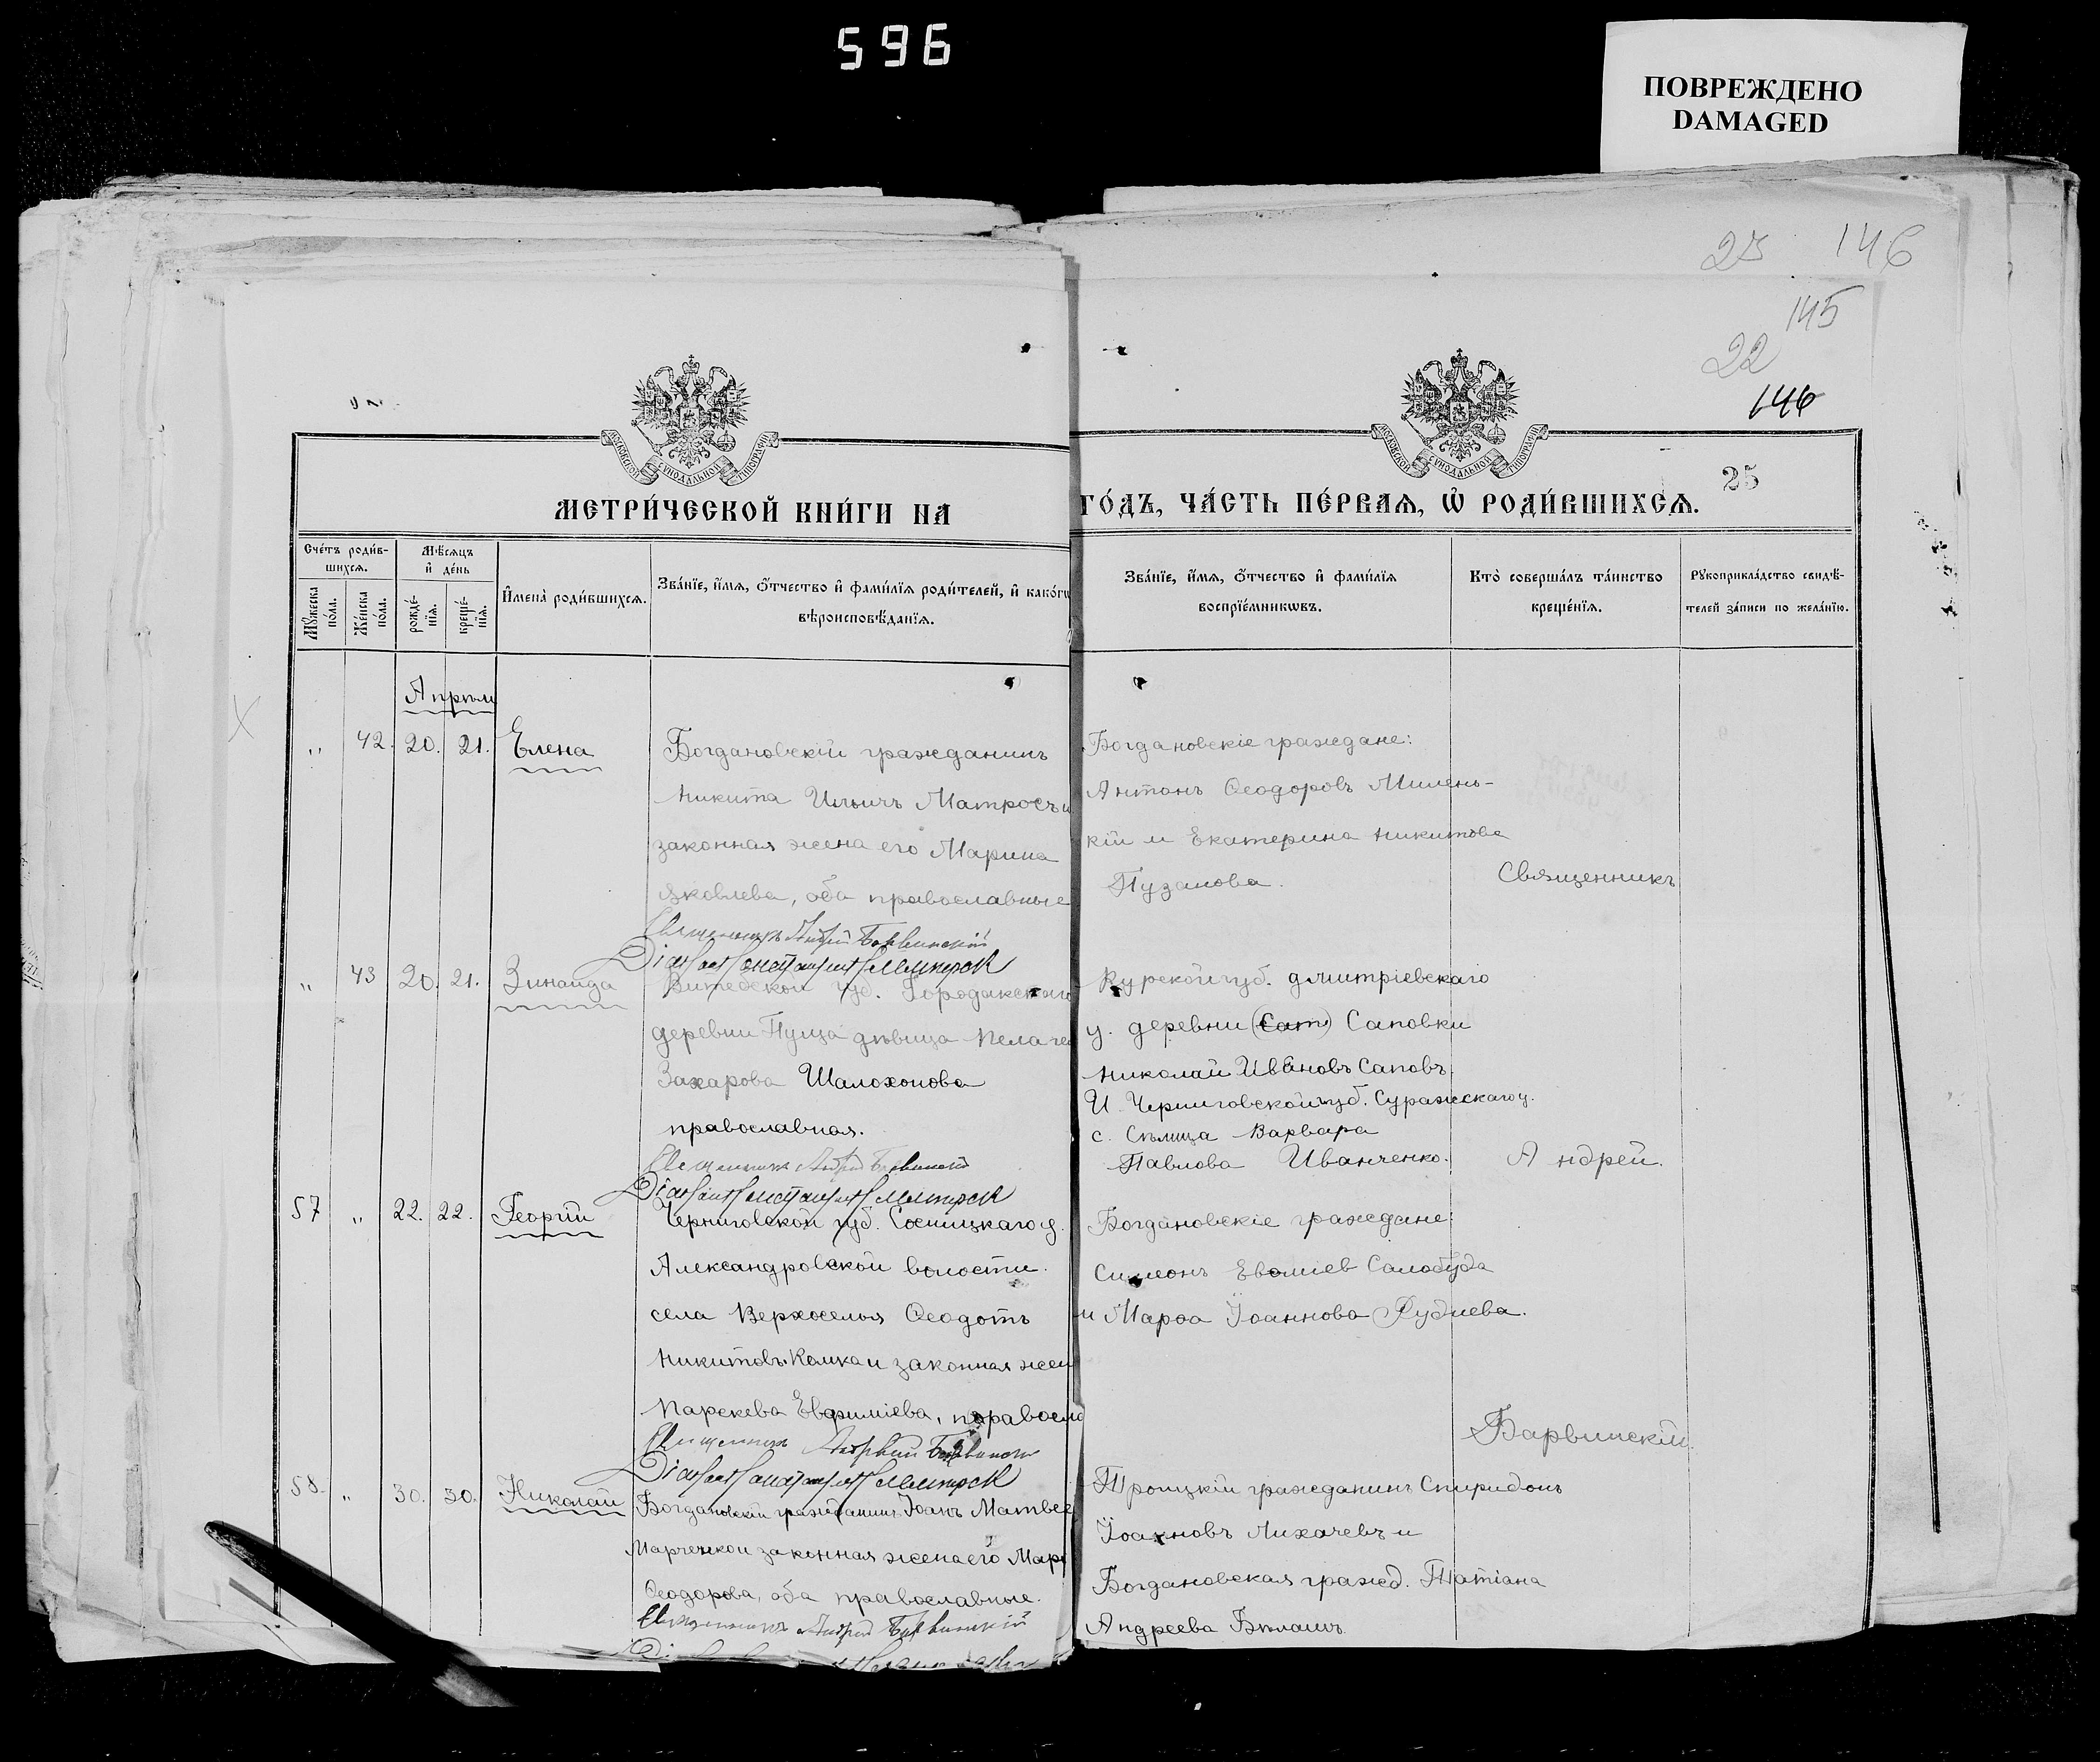 596
ПОВРЕЖДЕНО
DAMAGED
23 146
145
22
146
25
МОСКОВСКОЙ СѴНОДАЛЬНОЙ ТИПОГРАФІИ
МОСКОВСКОЙ СѴНОДАЛЬНОЙ ТИПОГРАФІИ
МЕТРИ́ЧЕСКОЙ КНИ́ГИ НА
ГО́ДЪ, ЧА́СТЬ ПЕ́РВАѦ, Ѡ҆ РОДИ́ВШИХСѦ.
Сче́тъ роди́в-
шихсѧ.
Мѣ́сѧцъ
и҆ де́нь
Мꙋ́жеска
по́ла.
Же́нска
по́ла.
рожде́-
нїѧ.
креще́-
нїѧ.
И҆мена̀ роди́вшихсѧ.
Зва́нїе, и҆́мѧ, ѻ҆́тчество и҆ фами́лїѧ роди́телей, и҆ како́гѡ
вѣроисповѣ́данїѧ.
Зва́нїе, и҆́мѧ, ѻ҆́тчество и҆ фами́лїѧ
воспрїе́мникѡвъ.
Кто̀ соверша́лъ та́инство
креще́нїѧ.
Рꙋкоприкла́дство свидѣ́-
телей за́писи по жела́нїю.
Апрѣль
" 42. 20. 21. Елена
Богдановскій гражданинъ
Никита Ильичъ Матросъ и
законная жена его Марина
Яковлева, оба православные
Священникъ Андрей Барвинскій
Богдановскіе граждане:
Антонъ Ѳеодоровъ Милень-
кій и Екатерина Никитова
Пузанова.
Священникъ
" 43 20. 21. Зинаида
Витебской губ. Городокскаго
деревни Пуща дѣвица Пелаге
Захарова Шалохонова
православная.
Священникъ Андрей Барвинскій
Курской губ. Дмитріевскаго
у. деревни (Сат) Саповки
Николай Ивановъ Саповъ.
И Черниговской губ. Суражскаго у.
с. Сѣлица Варвара
Павлова Иванченко.
Андрей.
57 " 22. 22. Георгій
Черниговской губ. Сосницкаго у.
Александровской волости
села Верхоселья Ѳеодотъ
Никитовъ и законная жен
Парскева Евфиміева, правосла
Священникъ Андрей Барвинскій
Богдановскіе граждане:
Симеонъ Салобуда
и Марѳа Іоаннова
Барвинскій.
58. " 30. 30. Николай
Богдановскій гражданинъ Іоанъ Матвее
Марченко и законная жена его Мар
Ѳеодорова, оба православные.
Священникъ Андрей Барвинскій
Троицкій гражданинъ Спиридонъ
Іоанновъ Лихачевъ и
Богдановская гражд. Татіана
Андреева Бѣлашъ.